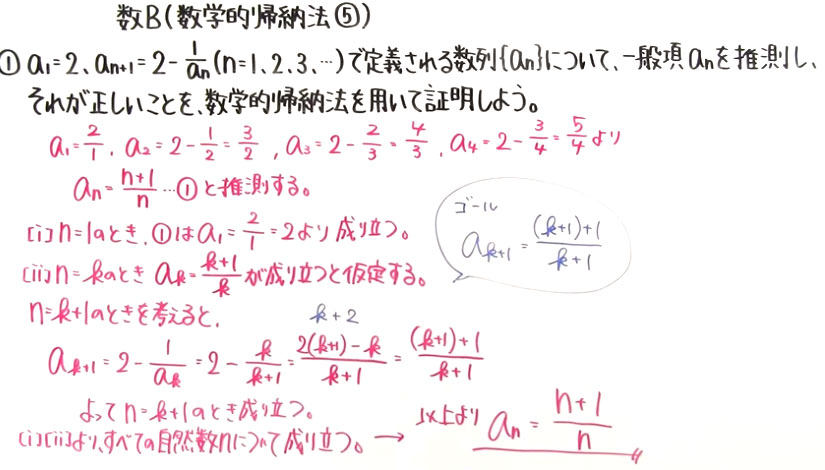 数B(数学的帰納法⑤)
① a₁=2、aₙ₊₁=2-1/aₙ(n=1、2、3、…)で定義される数列{aₙ}について、一般項aₙを推測し、
それが正しいことを、数学的帰納法を用いて証明しよう。
a₁=2/1, a₂=2-1/2=3/2, a₃=2-2/3=4/3, a₄=2-3/4=5/4より
aₙ=(n+1)/n…①と推測する。
[i]n=1のとき、①はa₁=2/1=2より成り立つ。
ゴール
aₖ₊₁=((k+1)+1)/(k+1)
[ii]n=kのときaₖ=(k+1)/kが成り立つと仮定する。
n=k+1のときを考えると、
k+2
aₖ₊₁=2-1/aₖ=2-k/(k+1)=(2(k+1)-k)/(k+1)=((k+1)+1)/(k+1)
よってn=k+1のとき成り立つ。
[i][ii]より、すべての自然数nについて成り立つ。→ 以上より aₙ=(n+1)/n